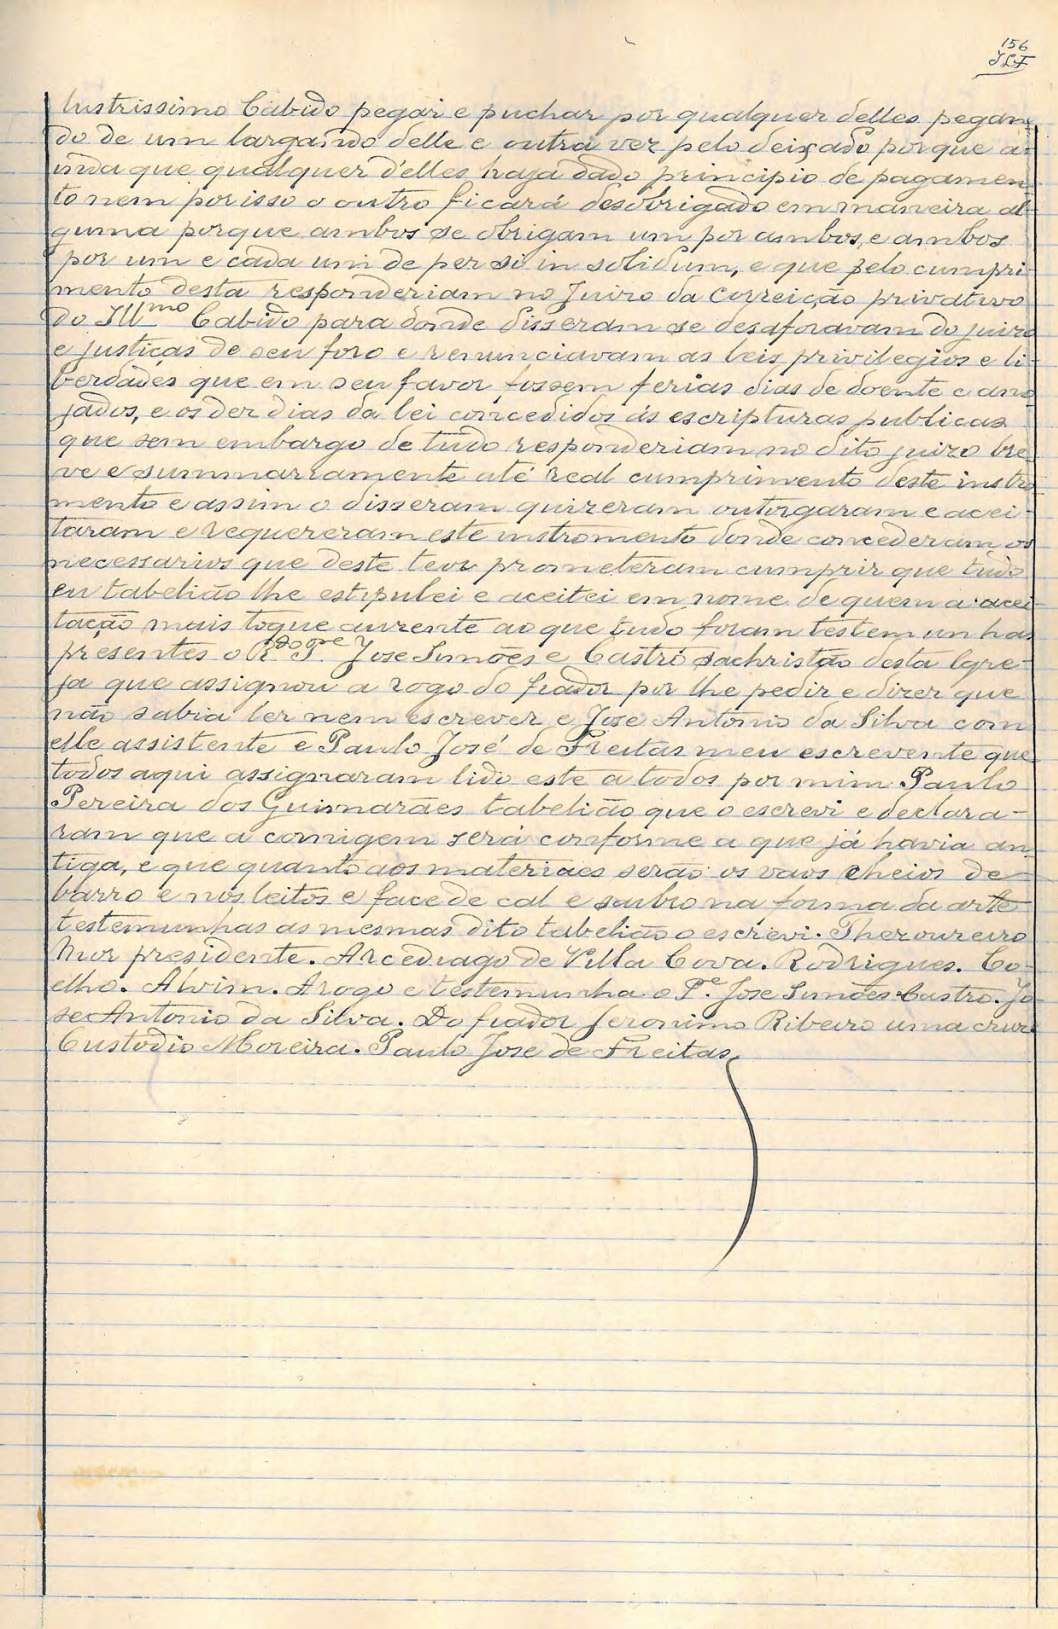 156
JLF
lustrissimo Cabido pegar e puchar por qualquer delles pegan-
do de um largando delle e outra vez pelo deixado porque a-
inda que qualquer d'elles haja dado principio de pagamen-
to nem por isso o outro ficará desobrigado em maneira al-
guma porque ambos se obrigam um por ambos, e ambos
por um e cada um de per si in solidum, e que pelo cumpri-
mento desta responderiam no Juizo da Correição privativo
do Ill.mo Cabido para donde disseram se desaforavam do juizo
e justiças de seu foro e renunciavam as leis privilegios e li-
berdades que em seu favor fossem ferias dias de doente e ano-
jados, e os dez dias da lei concedidos ás escripturas publicas
que sem embargo de tudo responderiam no dito juizo bre-
ve e summariamente até real cumprimento deste instro-
mento e assim o disseram quizeram outorgaram e acei-
taram e requereram este instromento donde concederam os
necessarios que deste teor prometeram cumprir que tudo
eu tabelião lhe estipulei e aceitei em nome de quem a acei-
tação mais toque aurente ao que tudo foram testemunhas
presentes o R.do P.e Jose Simões e Castro sachristão desta Igre-
ja que assignou a rogo do fiador por lhe pedir e dizer que
não sabia ler nem escrever e Jose Antonio da Silva com
elle assistente e Paulo José de Freitas meu escrevente que
todos aqui assignaram lido este a todos por mim Paulo
Pereira dos Guimarães tabelião que o escrevi e declara-
ram que a cornigem será conforme a que já havia an-
tiga, e que quanto aos materiaes serão os vaos cheios de
barro e nos leitos e face de cal e saibro na forma da arte
testemunhas as mesmas dito tabelião o escrevi. Thezoureiro
Mor presidente. Arcediago de Villa Cova. Rodrigues. Co-
elho. Alvim. A rogo e testemunha o P.e Jose Simões Castro. Jo-
se Antonio da Silva. Do fiador Jeronimo Ribeiro uma cruz
Custodio Moreira. Paulo Jose de Freitas